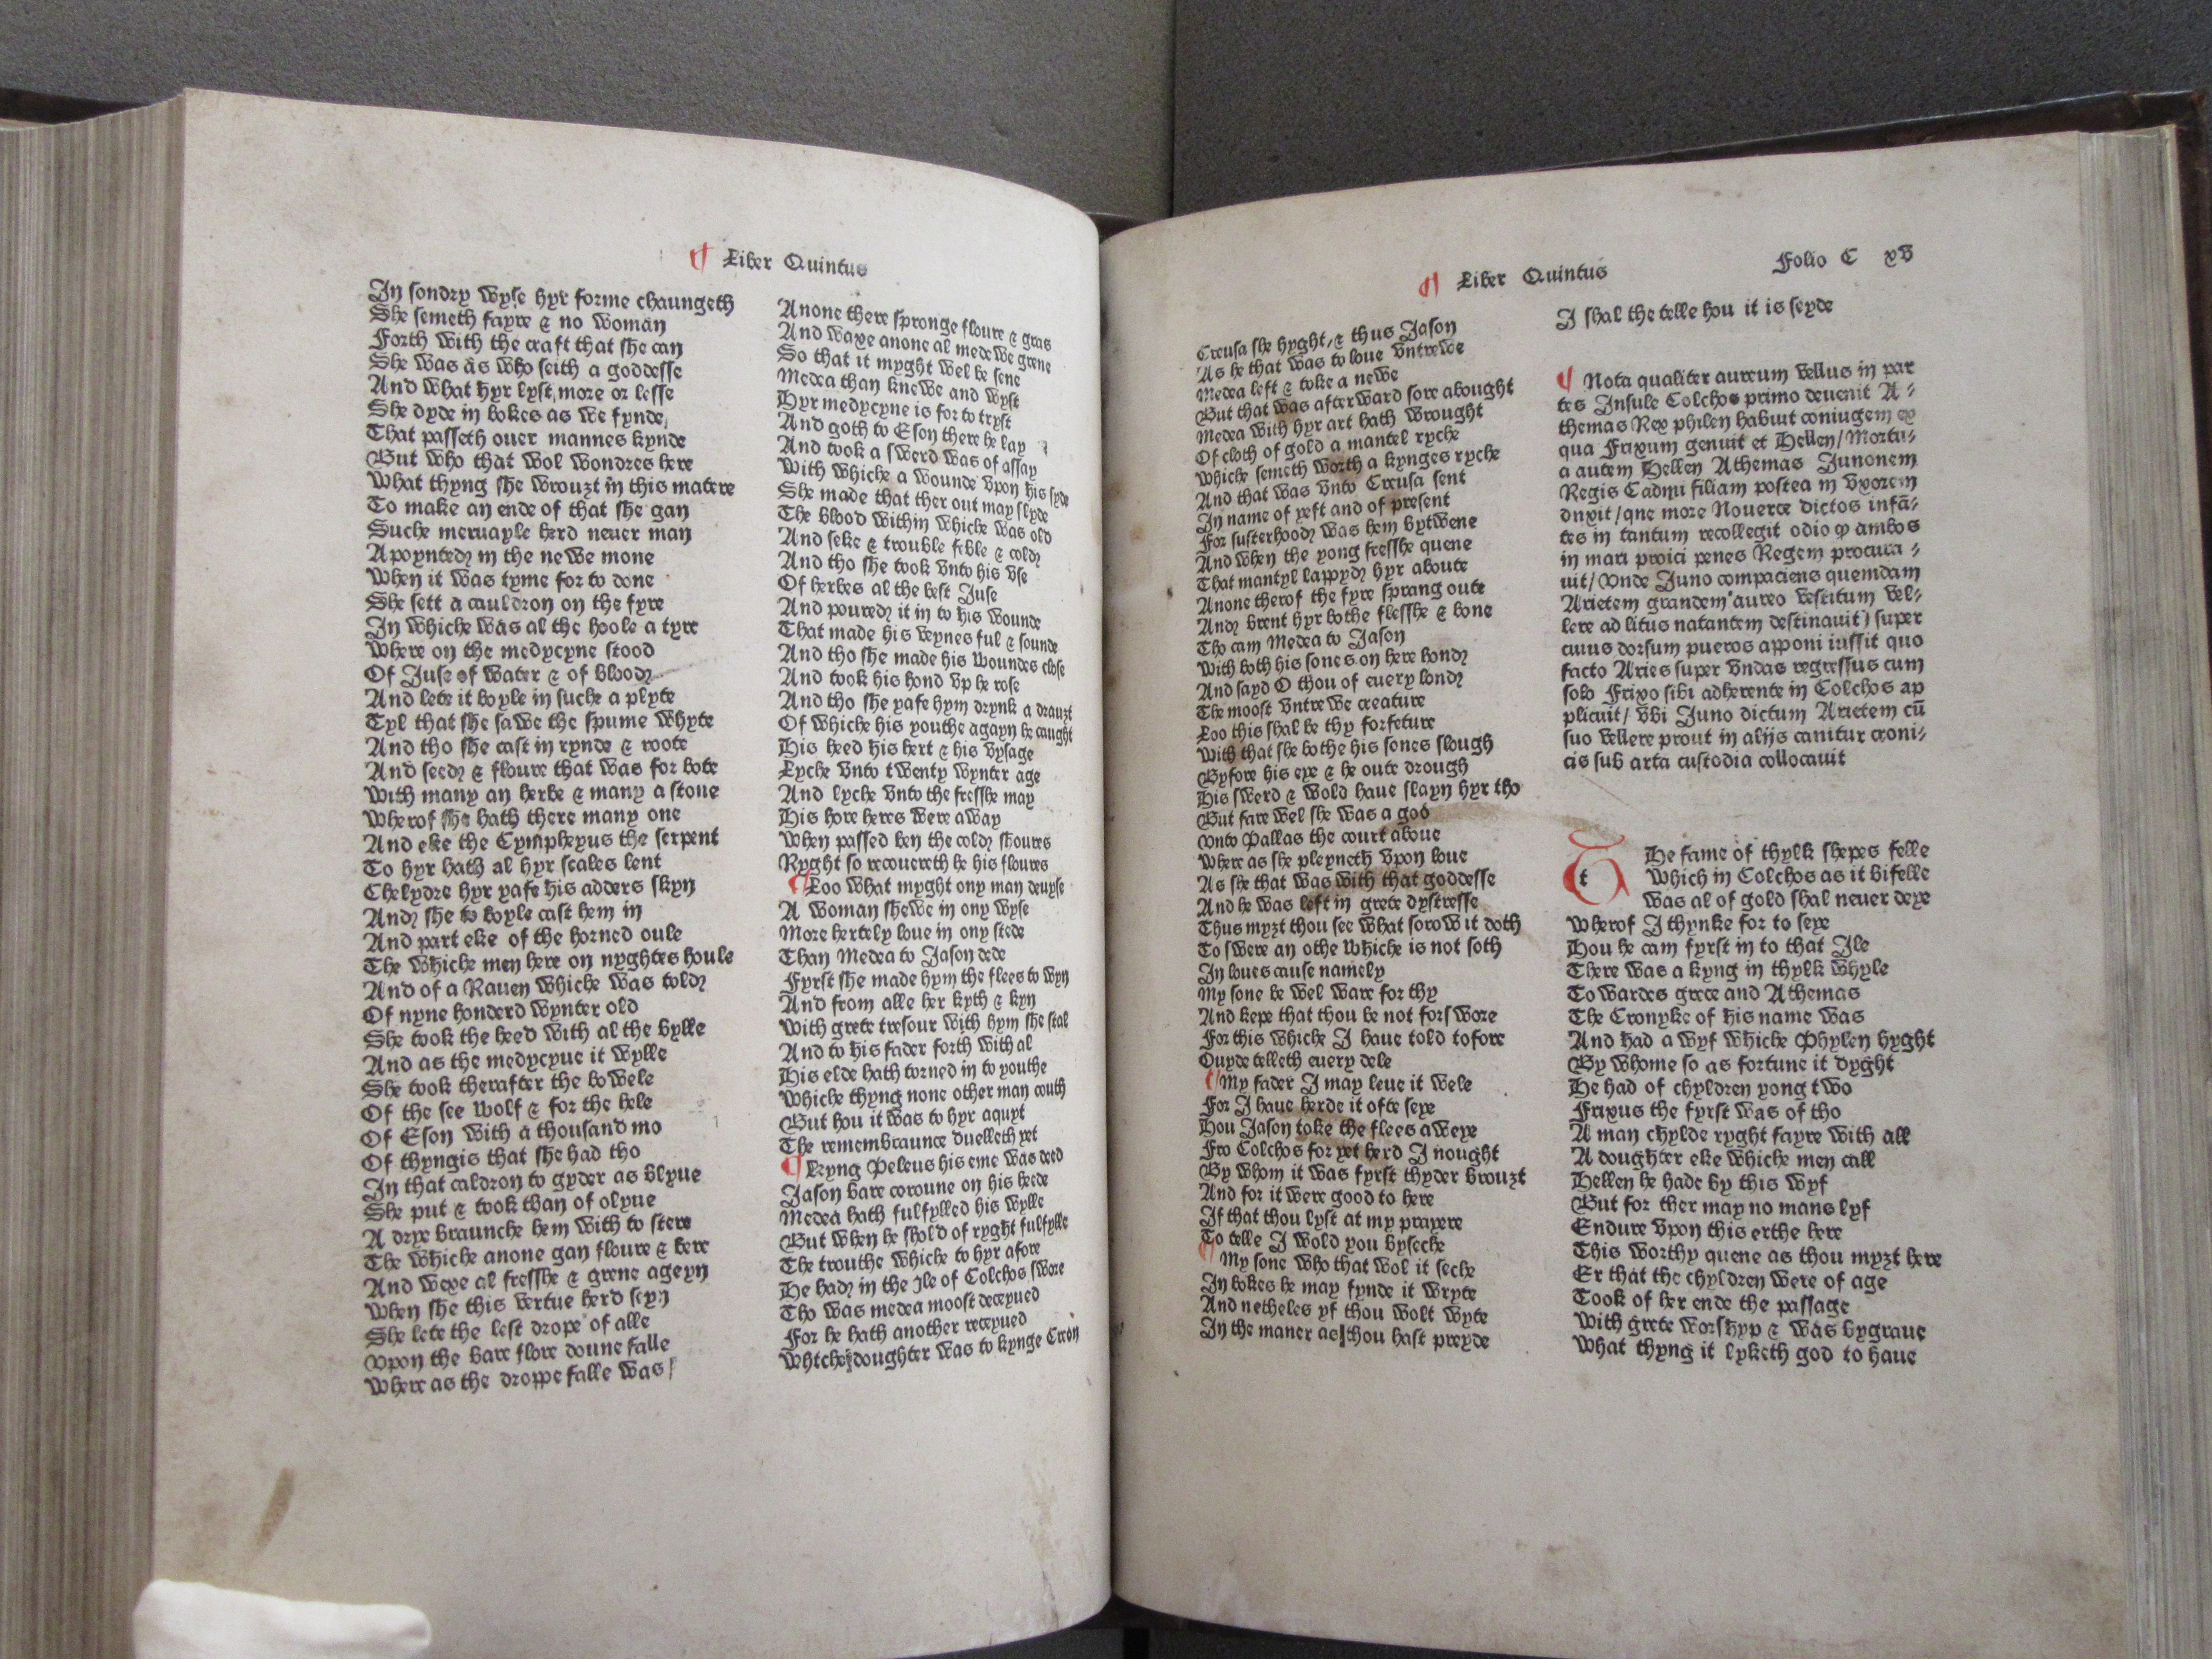 ¶ Liber Quintus
In sondry wyse hyr forme chaungeth
She semeth fayre & no woman
Forth with the craft that she can
She was as who seith a goddesse
And what hyr lyst, more or lesse
She dyde in bokes as we fynde,
That passeth ouer mannes kynde
But who that wol wondres here
What thyng she wrouzt in this matere
To make an ende of that she gan
Suche meruayle herd neuer man
Apoynted in the newe mone
When it was tyme for to done
She sett a cauldron on the fyre
In whiche was al the hoole a tyre
Where on the medycyne stood
Of Juse of water & of blood
And lete it boyle in suche a plyte
Tyl that she sawe the spume whyte
And tho she cast in rynde & roote
And seed & floure that was for bote
With many an herbe & many a stone
Wherof she hath there many one
And eke the Cymphexus the serpent
To hyr hath al hyr scales lent
Chelydre hyr yafe his adders skyn
And she to boyle cast hem in
And part eke of the horned oule
The whiche men here on nyghtes houle
And of a Rauen whiche was told
Of nyne honderd wynter old
She took the heed with al the bylle
And as the medycyne it wylle
She took therafter the bowele
Of the see wolf & for the hele
Of Eson with a thousand mo
Of thyngis that she had tho
In that caldron to gyder as blyue
She put & took than of olyue
A drye braunche hem with to stere
The whiche anone gan floure & bere
And wexe al fresshe & grene ageyn
When she this vertue herd seyn
She lete the lest drope of alle
Vpon the bare flore doune falle
Where as the droppe falle was
Anone there spronge floure & gras
And waxe anone al medewe grene
So that it myght wel be sene
Medea than knewe and wyst
Hyr medycyne is for to tryst
And goth to Eson there he lay
And took a swerd was of assay
With whiche a wounde vpon his syde
She made that ther out may slyde
The blood within whiche was old
And seke & trouble feble & cold
And tho she took vnto his vse
Of herbes al the best Juse
And poured it in to his wounde
That made his veynes ful & sounde
And tho she made his woundes close
And took his hond vp he rose
And tho she yafe hym drynk a drauzt
Of whiche his youthe agayn he caught
His heed his hert & his vysage
Lyche vnto twenty wynter age
And lyche vnto the fresshe may
His hore heres were away
When passed ben the cold shoures
Ryght so recouereth he his floures
¶ Loo what myght ony man deuyse
A woman shewe in ony wyse
More hertely loue in ony stede
Than Medea to Jason dede
Fyrst she made hym the flees to wyn
And from alle her kyth & kyn
With grete tresour with hym she stal
And to his fader forth with al
His elde hath torned in to youthe
Whiche thyng none other man couth
But hou it was to hyr aquyt
The remembraunce duelleth yet
¶ Kyng Peleus his eme was deed
Jason bare coroune on his heede
Medea hath fulfylled his wylle
But when he shold of ryght fulfylle
The trouthe whiche to hyr afore
He had in the Jle of Colchos swore
Tho was medea moost deceyued
For he hath another receyued
Whtche doughter was to kynge Creon
¶ Liber Quintus Folio C xv
Creusa she hyght, & thus Jason
As he that was to loue vntrewe
Medea left & toke a newe
But that was afterward sore abought
Medea with hyr art hath wrought
Of cloth of gold a mantel ryche
Whiche semeth worth a kynges ryche
And that was vnto Creusa sent
In name of yeft and of present
For susterhood was hem bytwene
And when the yong fresshe quene
That mantyl lappyd hyr aboute
Anone therof the fyre sprang oute
And brent hyr bothe flesshe & bone
Tho cam Medea to Jason
With both his sones on here hond
And sayd O thou of euery lond
The moost vntrewe creature
Loo this shal be thy forfeture
With that she bothe his sones slough
Byfore his eye & he oute drough
His swerd & wold haue slayn hyr tho
But fare wel she was a goo
Vnto Pallas the court aboue
Where as she pleyneth vpon loue
As she that was with that goddesse
And he was left in grete dystresse
Thus myzt thou see what sorow it doth
To swere an othe whiche is not soth
In loues cause namely
My sone be wel ware for thy
And kepe that thou be not forswore
For this whiche I haue told tofore
Ouyde telleth euery dele
¶ My fader I may leue it wele
For I haue herde it ofte seye
Hou Jason toke the flees aweye
Fro Colchos for yet herd I nought
By whom it was fyrst thyder brouzt
And for it were good to here
If that thou lyst at my prayere
To telle I wold you byseche
¶ My sone who that wol it seche
In bokes he may fynde it wryte
And netheles yf thou wolt wyte
In the maner as thou hast preyde
I shal the telle hou it is seyde
¶ Nota qualiter aureum vellus in par
tes Insule Colchos primo deuenit A-
themas Rex philen habuit coniugem ex
qua Frixum genuit et Hellen/ Mortu-
a autem Hellen Athemas Junonem
Regis Cadmi filiam postea in vxorem
duxit/ que more Nouerce dictos infā-
tes in tantum recollegit odio ꝙ ambos
in mari proici penes Regem procura-
uit/ Vnde Juno compaciens quemdam
Arietem grandem aureo vestitum vel-
lere ad litus natantem destinauit/ super
cuius dorsum pueros apponi iussit quo
facto Aries super vndas regressus cum
solo Frixo sibi adherente in Colchos ap
plicuit/ vbi Juno dictum Arietem cū
suo vellere prout in alijs canitur croni-
cis sub arta custodia collocauit
The fame of thylk shepes felle
Which in Colchos as it bifelle
Was al of gold shal neuer deye
Wherof I thynke for to seye
Hou he cam fyrst in to that Ile
There was a kyng in thylk whyle
Towardes grece and Athemas
The Cronyke of his name was
And had a wyf whiche Phylen hyght
By whome so as fortune it dyght
He had of chyldren yong two
Frixus the fyrst was of tho
A man chylde ryght fayre with all
A doughter eke whiche men call
Hellen he hade by this wyf
But for ther may no mans lyf
Endure vpon this erthe here
This worthy quene as thou myzt here
Er that the chyldren were of age
Took of her ende the passage
With grete worshyp & was bygraue
What thyng it lyketh god to haue